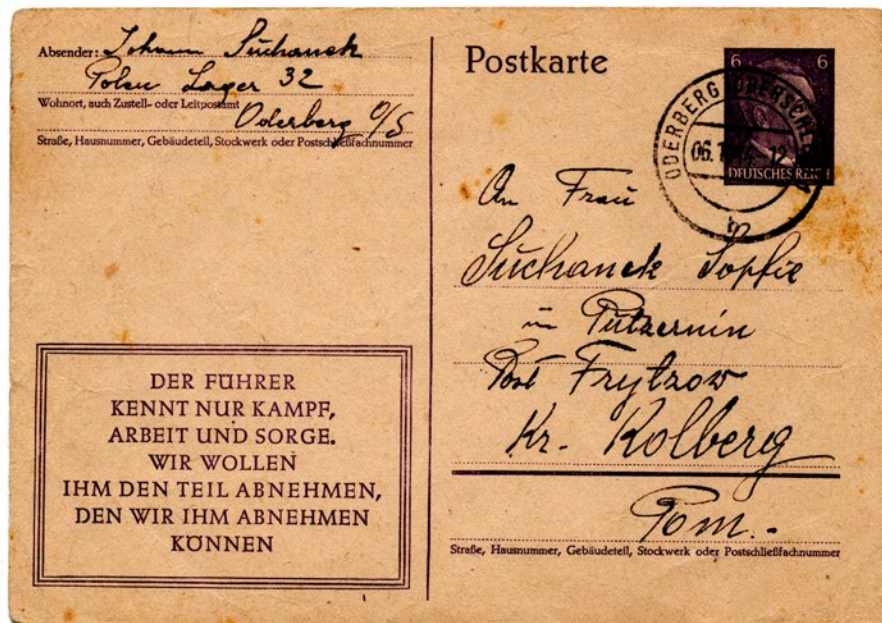 Absender: Johann Suchanek
Polen Lager 32
Wohnort, auch Zustell- oder Leitpostamt
Oderberg O/S
Straße, Hausnummer, Gebäudeteil, Stockwerk oder Postschließfachnummer
DER FÜHRER
KENNT NUR KAMPF,
ARBEIT UND SORGE.
WIR WOLLEN
IHM DEN TEIL ABNEHMEN,
DEN WIR IHM ABNEHMEN
KÖNNEN
Postkarte
6 6
DEUTSCHES REICH
ODERBERG
b
An Frau
Suchanek Sophie
in Putzernin
Post Frytzow
Kr. Kolberg
Pom.-
Straße, Hausnummer, Gebäudeteil, Stockwerk oder Postschließfachnummer